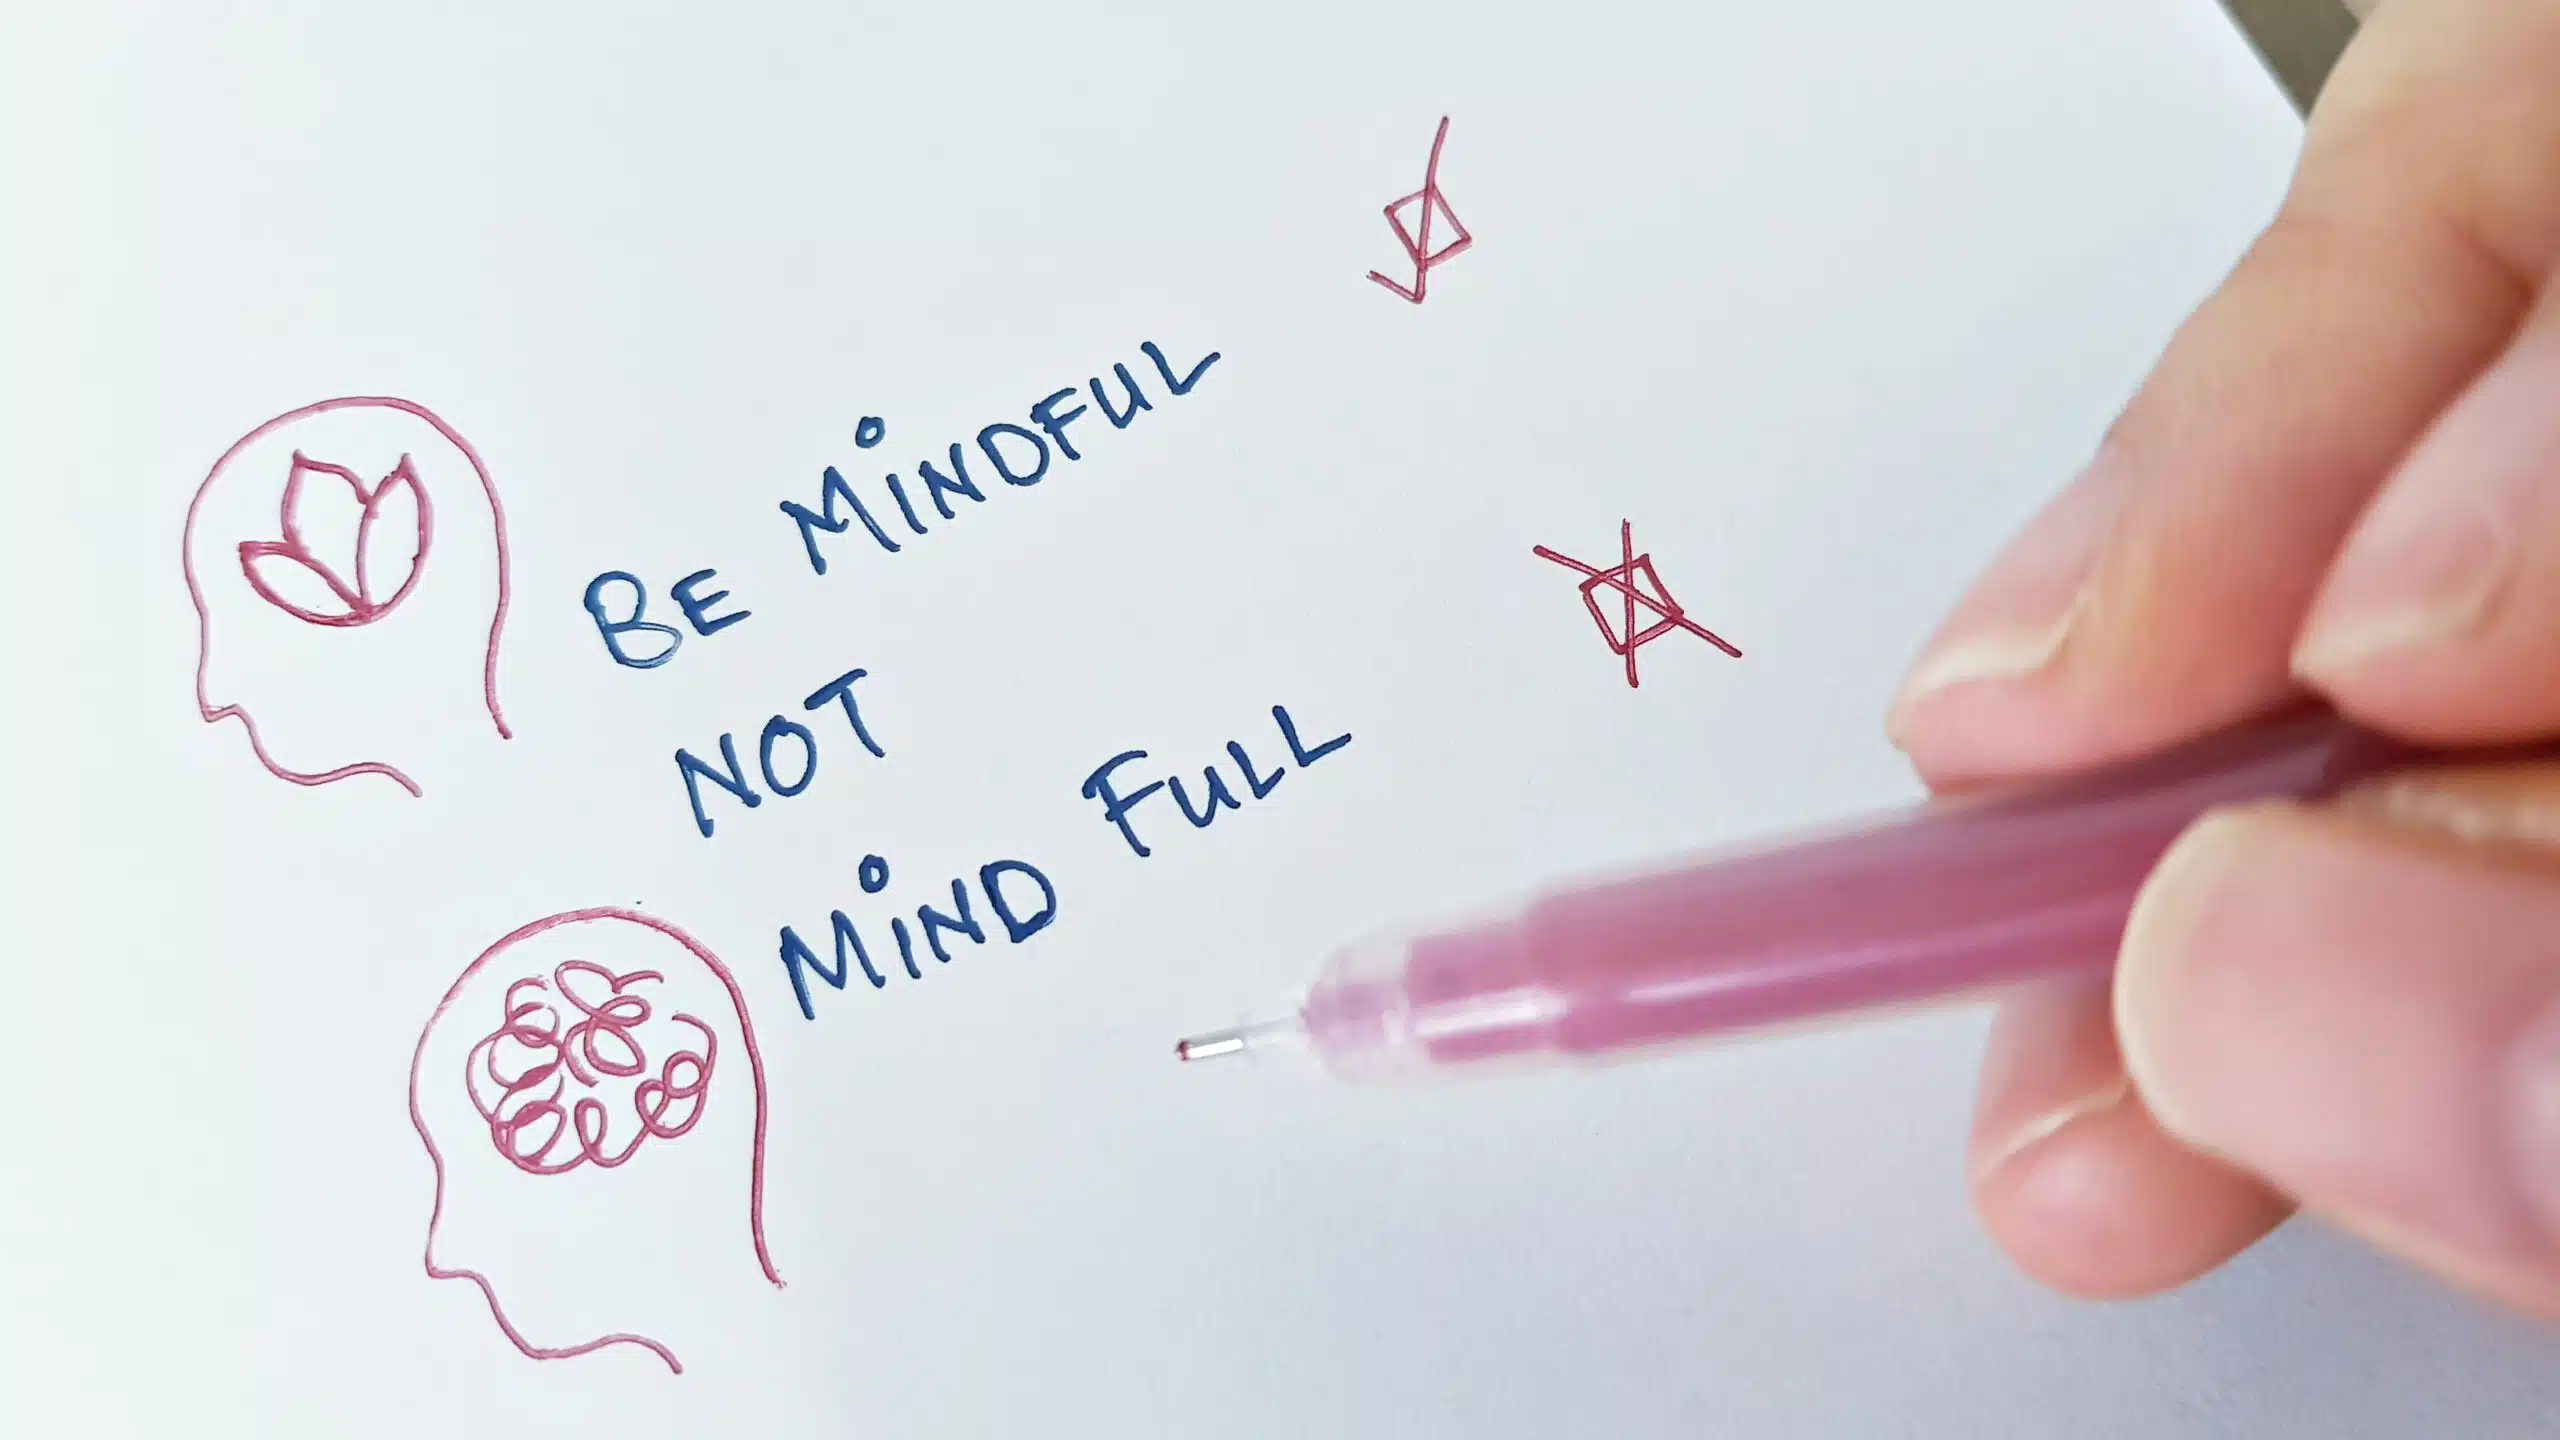 BE MINDFUL
NOT
MIND FULL